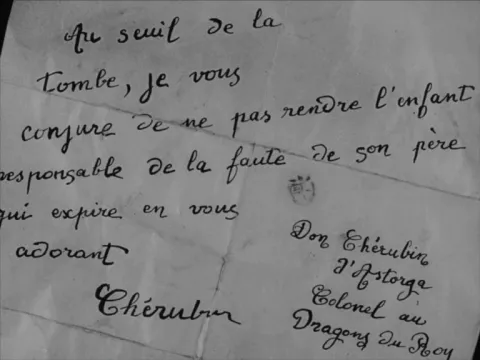 Au seuil de la
tombe, je vous
conjure de ne pas rendre l'enfant
responsable de la faute de son père
qui expire en vous
adorant
Chérubin
Don Chérubin
d'Astorga
Colonel au
Dragons du Roy